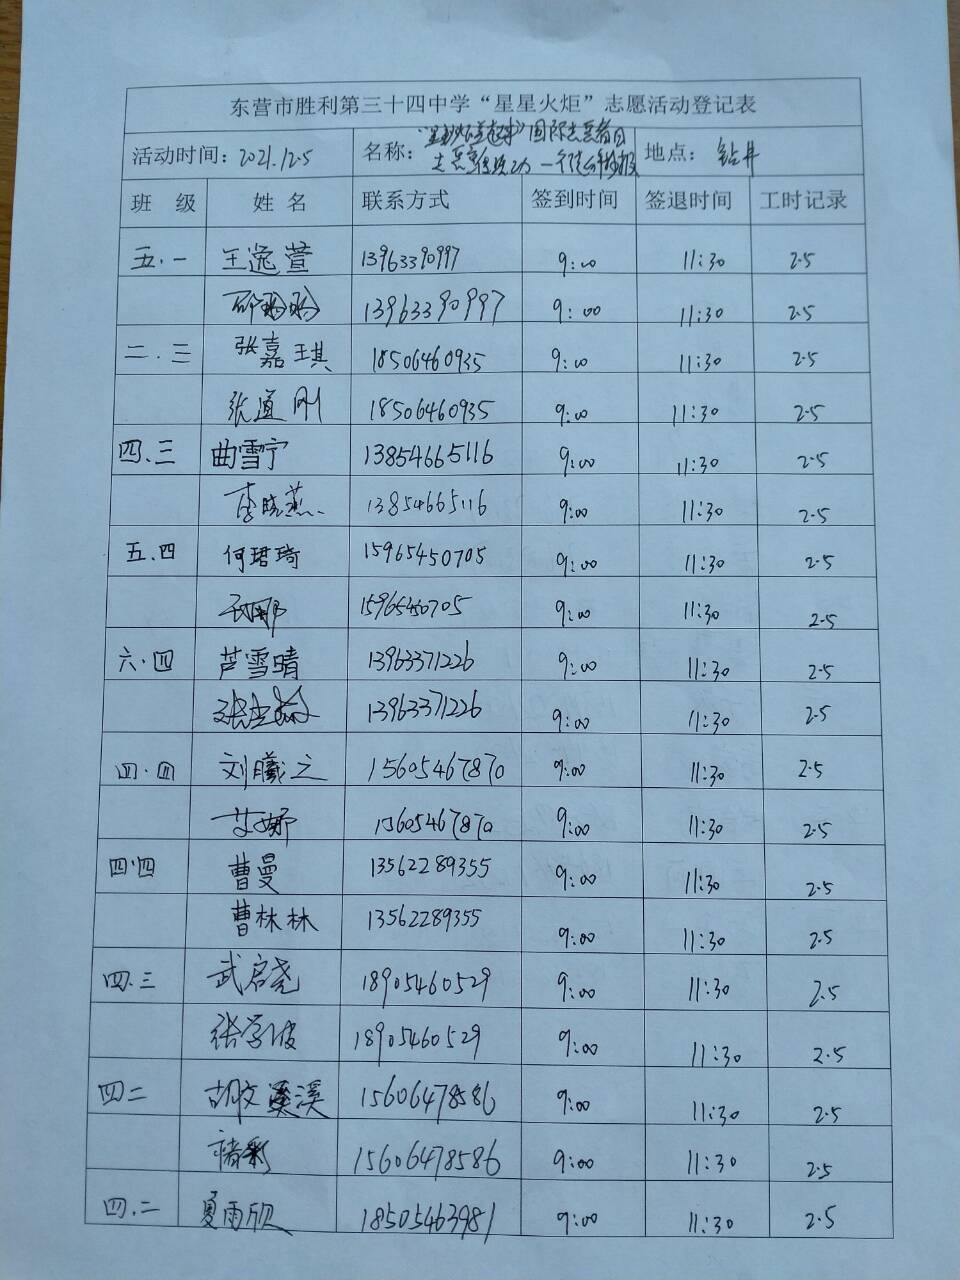 东营市胜利第三十四中学“星星火炬”志愿活动登记表
活动时间：2021.12.5 名称： 国际志愿者日 地点：钻井
班 级 姓 名 联系方式 签到时间 签退时间 工时记录
五.一 王逸萱 13963390997 9:00 11:30 2.5
13963390997 9:00 11:30 2.5
二.三 张嘉琪 18506460935 9:00 11:30 2.5
张道刚 18506460935 9:00 11:30 2.5
四.三 曲雪宁 13854665116 9:00 11:30 2.5
李晓燕 13854665116 9:00 11:30 2.5
五.四 何珺琦 15965450705 9:00 11:30 2.5
15965450705 9:00 11:30 2.5
六.四 芦雪晴 13963371226 9:00 11:30 2.5
13963371226 9:00 11:30 2.5
四.四 刘曦之 15605467870 9:00 11:30 2.5
艾娜 15605467870 9:00 11:30 2.5
四.四 曹曼 13562289355 9:00 11:30 2.5
曹林林 13562289355 9:00 11:30 2.5
四.三 武启尧 18905460529 9:00 11:30 2.5
张学波 18905460529 9:00 11:30 2.5
四二 胡文溪 15606478586 9:00 11:30 2.5
褚彩 15606478586 9:00 11:30 2.5
四.二 夏雨欣 18505463981 9:00 11:30 2.5